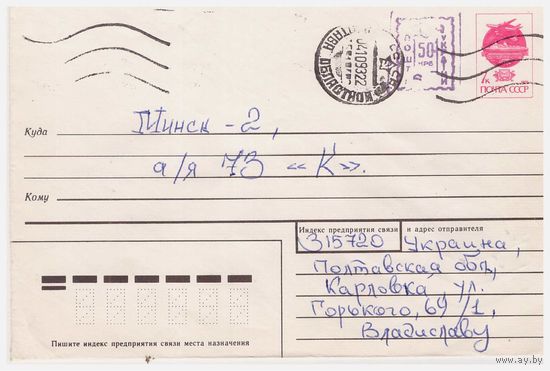 50
крб
7к
ПОЧТА СССР
Куда
Минск-2,
а/я 73 «К».
Кому
Индекс предприятия связи и адрес отправителя
315720 Украина,
Полтавская обл,
Карловка, ул.
Горького, 69/1,
Владиславу
Пишите индекс предприятия связи места назначения
www.ay.by